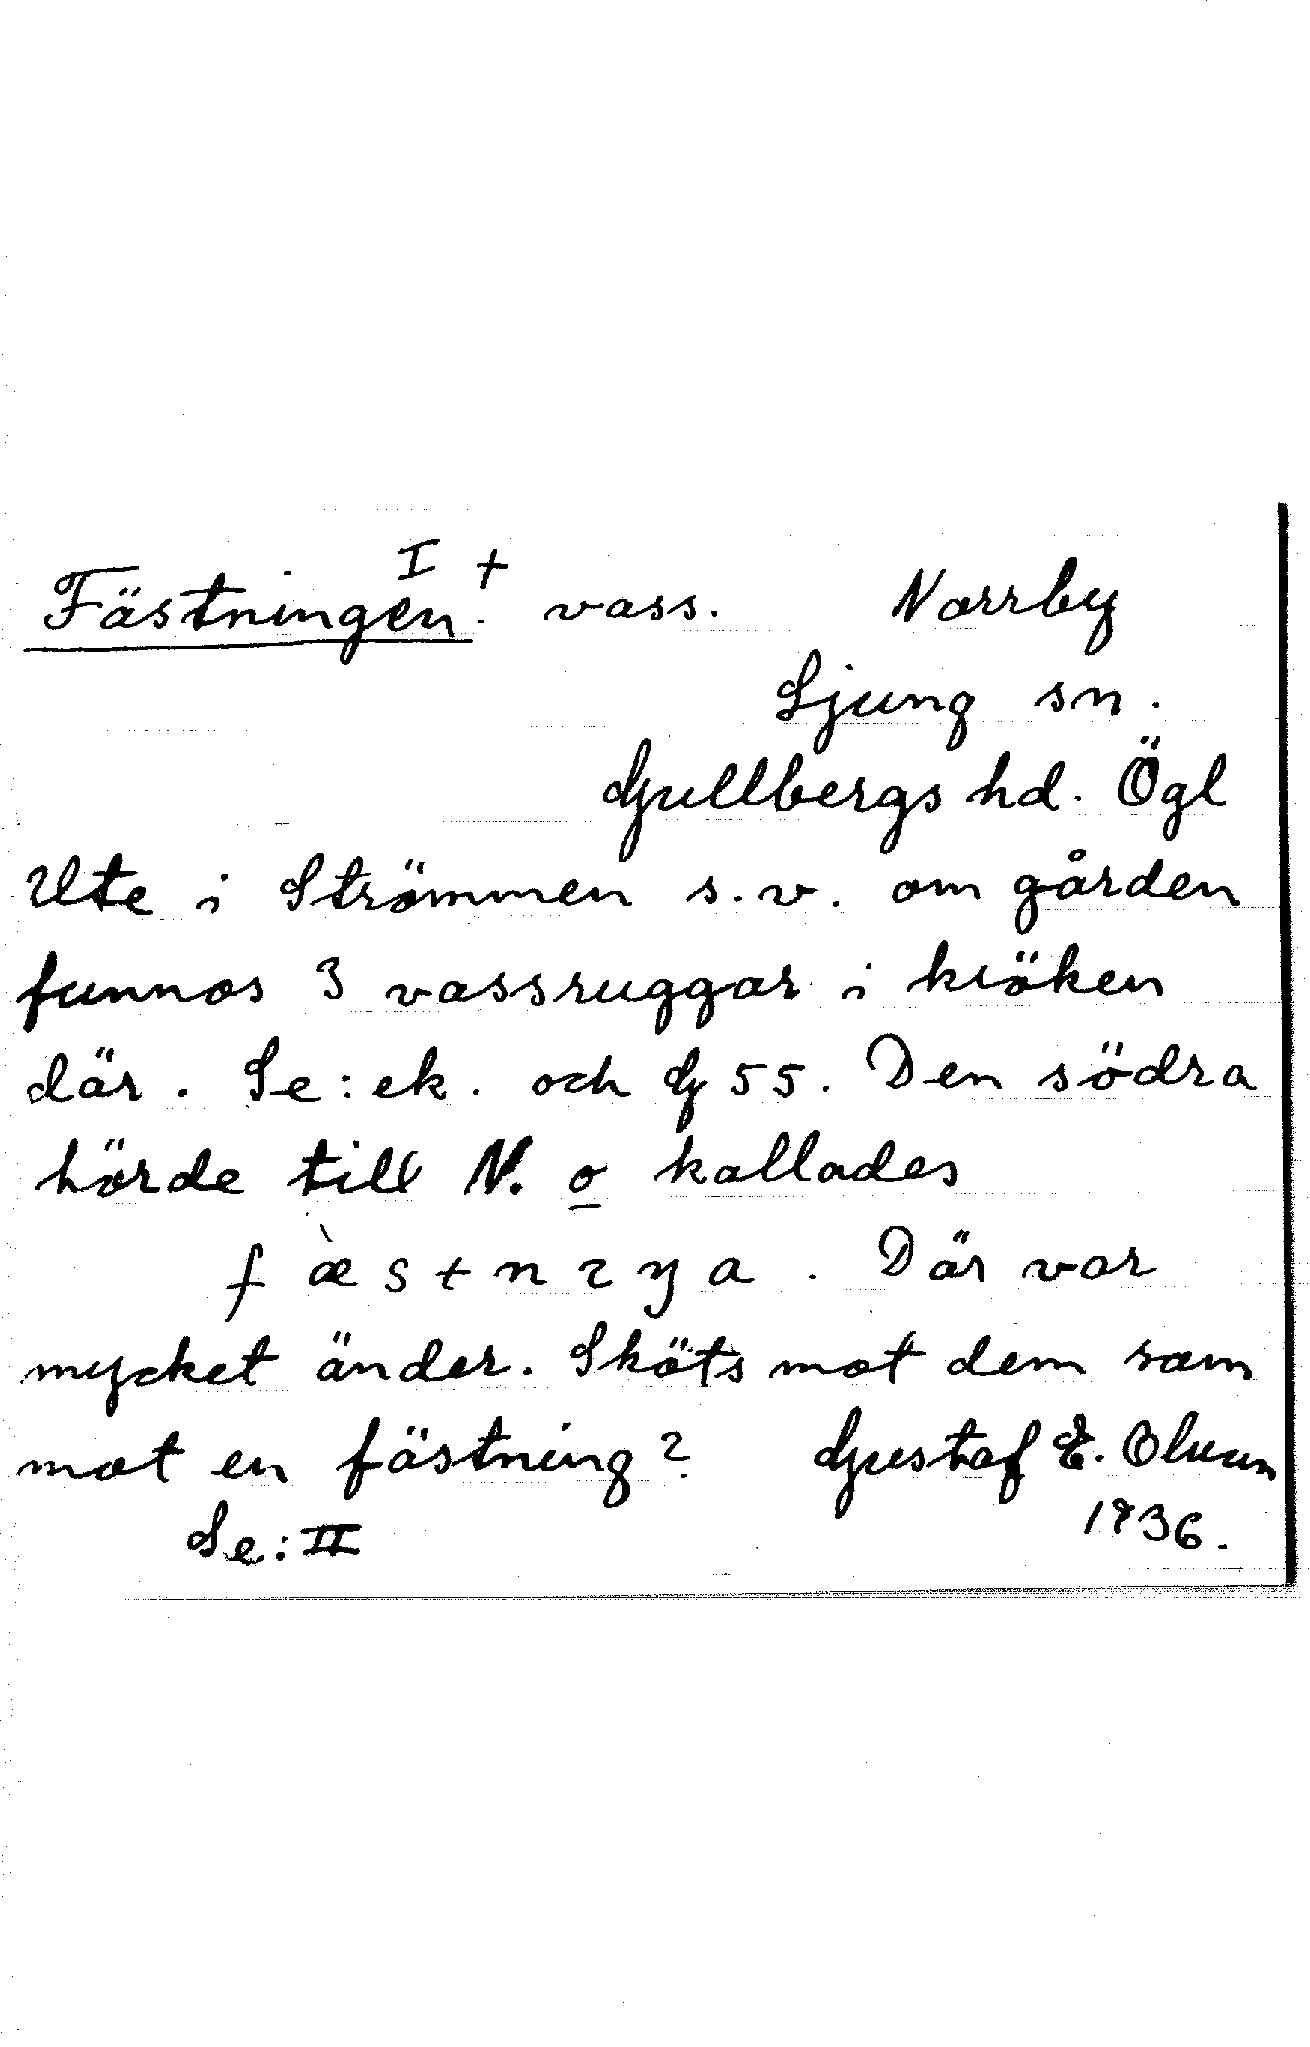 Fästningen I +. vass. Norrby
Ljung sn.
Gullbergs hd. Ögl
Ute i Strömmen s.v. om gården
funnos 3 vassruggar i kröken
där. Se: ek. och G 55. Den södra
hörde till N. o kallades
fæ̀stnɪŋa. Där var
mycket änder. Sköts mot dem som
mot en fästning? Gustaf E. Olsson
Se: II 1936.